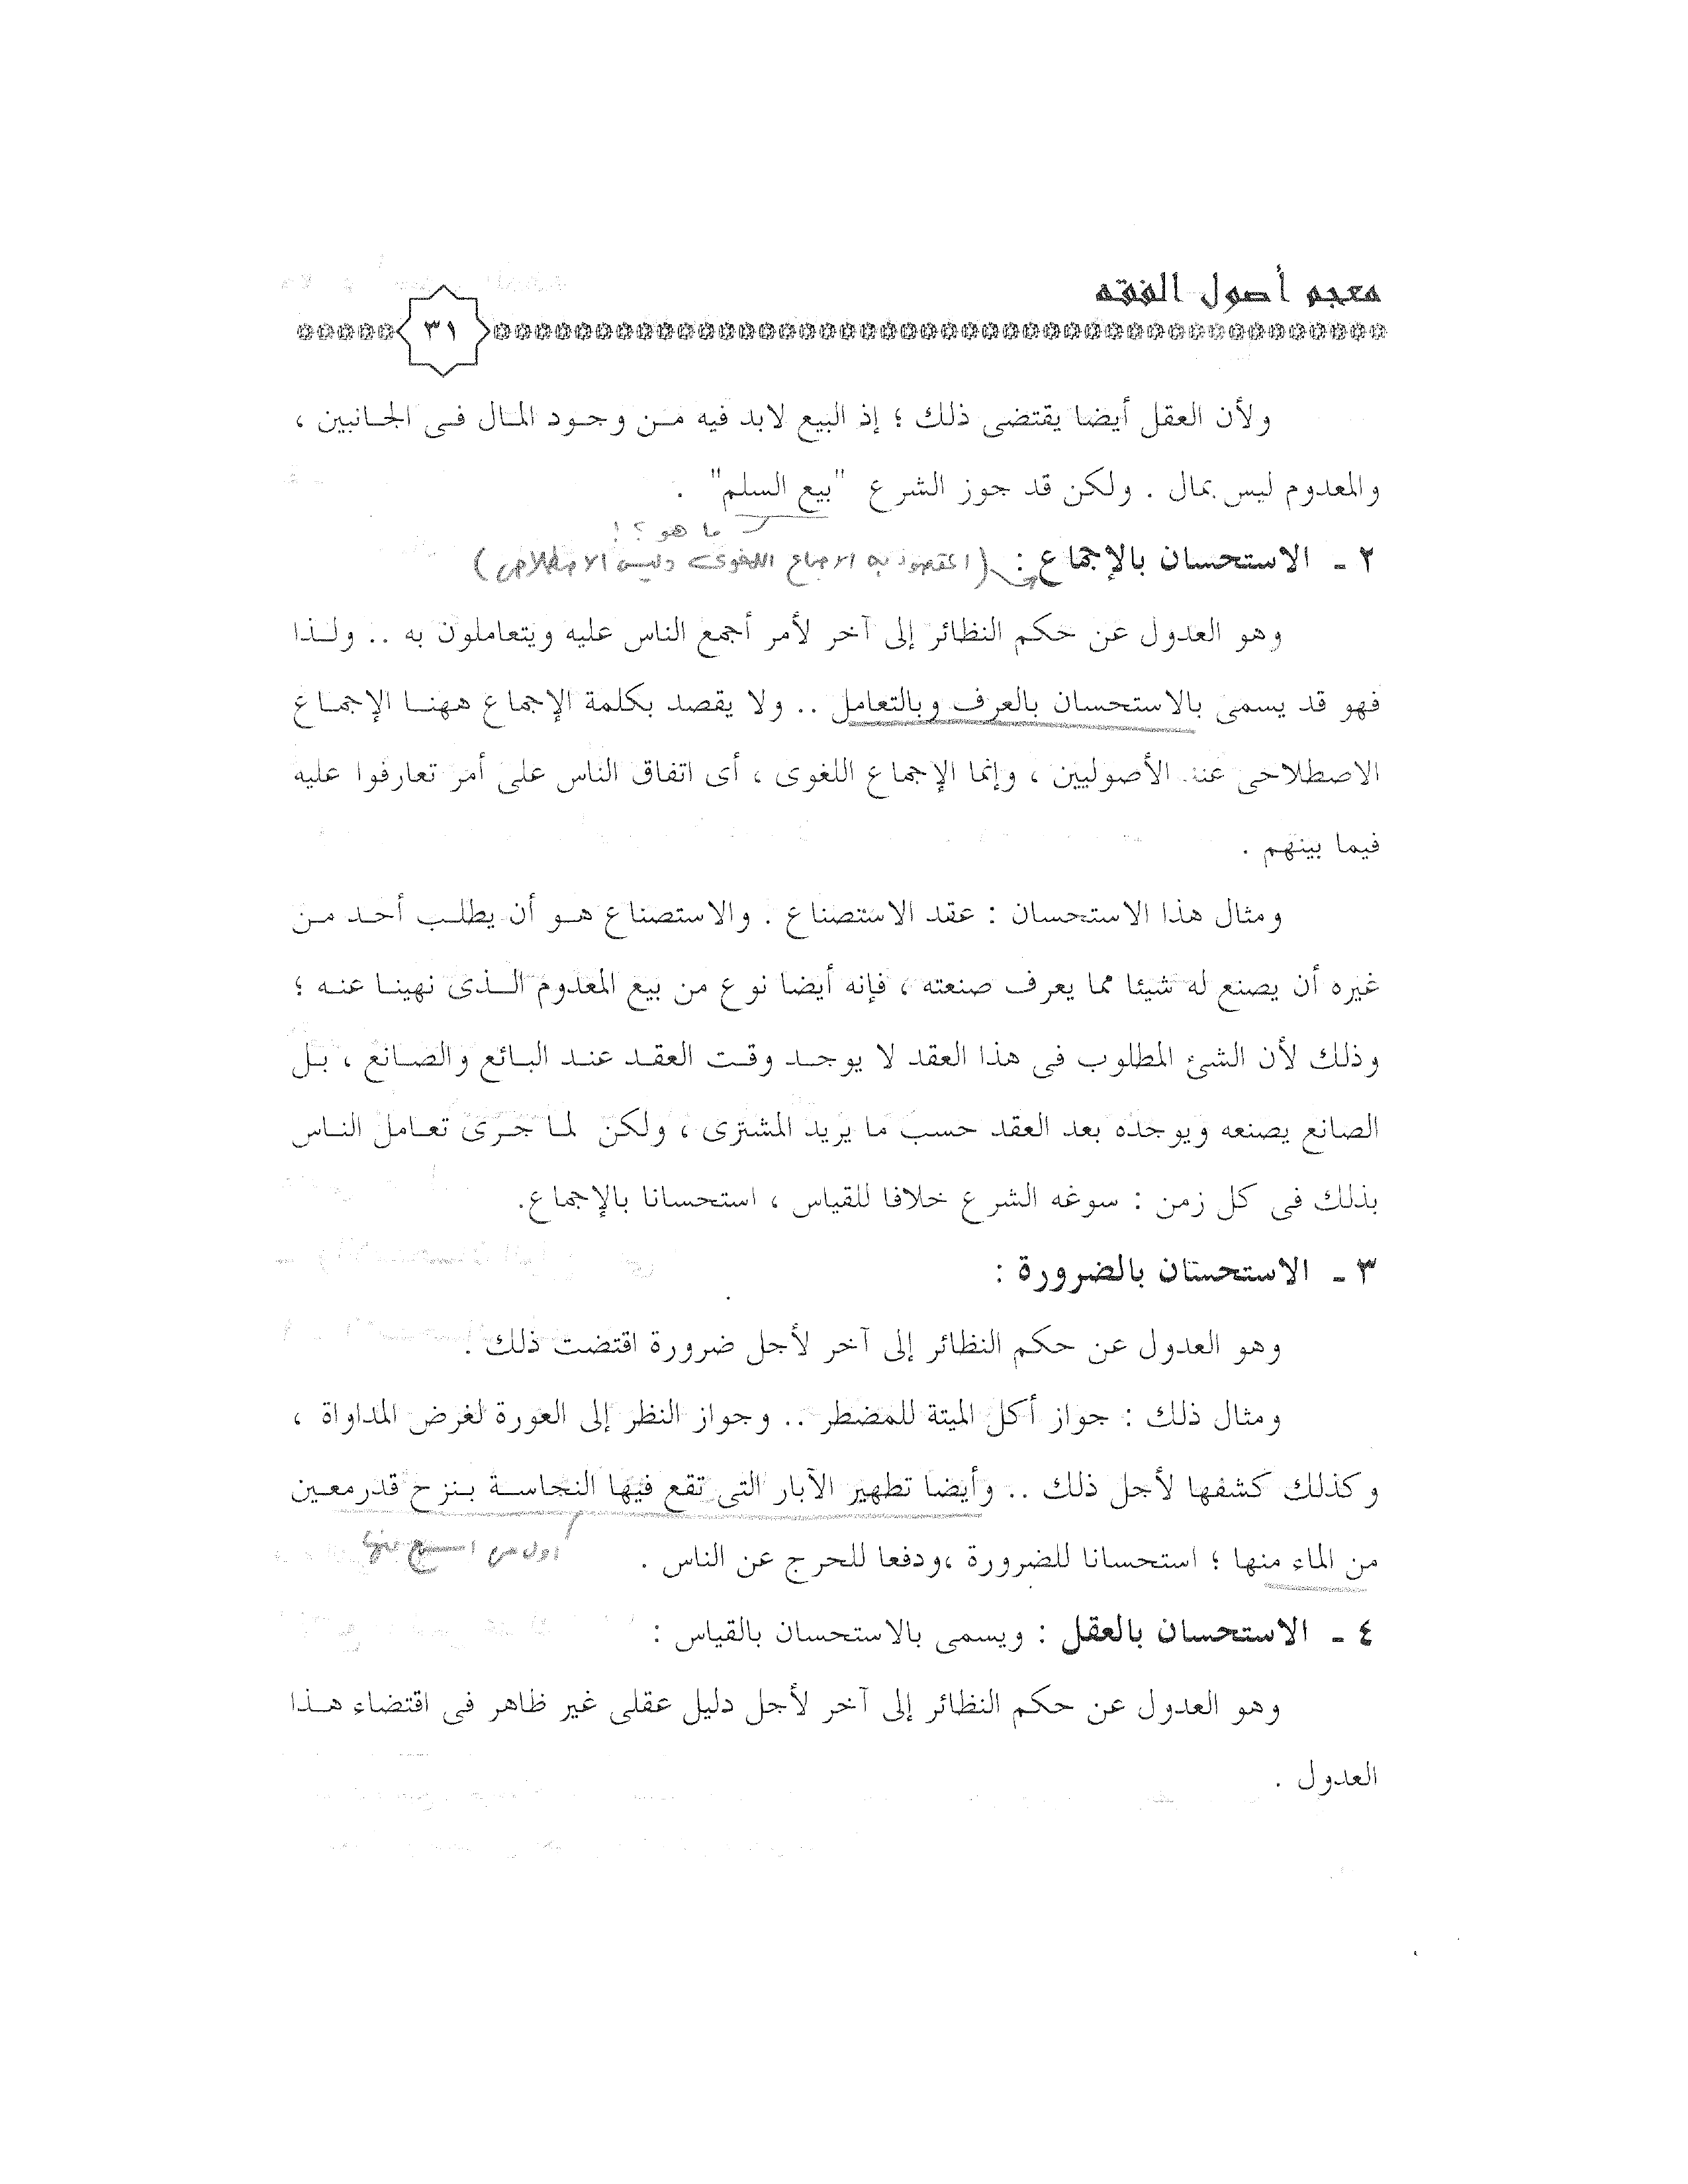 معجم أصول الفقه
٣١
ولأن العقل أيضا يقتضى ذلك ؛ إذ البيع لابد فيه مـن وجـود المـال فـى الجـانبين ،
والمعدوم ليس بمال . ولكن قد جوز الشرع "بيع السلم" .
ما هو ؟ !
٢ ـ الاستحسان بالإجماع : (المقصود به الاجماع اللغوى وليس الاصطلاحى)
وهو العدول عن حكم النظائر إلى آخر لأمر أجمع الناس عليه ويتعاملون به .. ولـذا
فهو قد يسمى بالاستحسان بالعرف وبالتعامل .. ولا يقصد بكلمة الإجماع ههنـا الإجمـاع
الاصطلاحى عند الأصوليين ، وإنما الإجماع اللغوى ، أى اتفاق الناس على أمر تعارفوا عليه
فيما بينهم .
ومثال هذا الاستحسان : عقد الاستصناع . والاستصناع هـو أن يطلـب أحـد مـن
غيره أن يصنع له شيئا مما يعرف صنعته ، فإنه أيضا نوع من بيع المعدوم الـذى نهينـا عنـه ؛
وذلك لأن الشئ المطلوب فى هذا العقد لا يوجـد وقـت العقـد عنـد البـائع والصـانع ، بـل
الصانع يصنعه ويوجده بعد العقد حسب ما يريد المشترى ، ولكن لمـا جـرى تعـامل النـاس
بذلك فى كل زمن : سوغه الشرع خلافا للقياس ، استحسانا بالإجماع.
٣ ـ الاستحسان بالضرورة :
وهو العدول عن حكم النظائر إلى آخر لأجل ضرورة اقتضت ذلك .
ومثال ذلك : جواز أكل الميتة للمضطر .. وجواز النظر إلى العورة لغرض المداواة ،
وكذلك كشفها لأجل ذلك .. وأيضا تطهير الآبار التى تقع فيها النجاسـة بـنزح قدرمعـين
من الماء منها ؛ استحسانا للضرورة ،ودفعا للحرج عن الناس .
أول من اسمع عنها
٤ ـ الاستحسان بالعقل : ويسمى بالاستحسان بالقياس :
وهو العدول عن حكم النظائر إلى آخر لأجل دليل عقلى غير ظاهر فى اقتضاء هـذا
العدول .